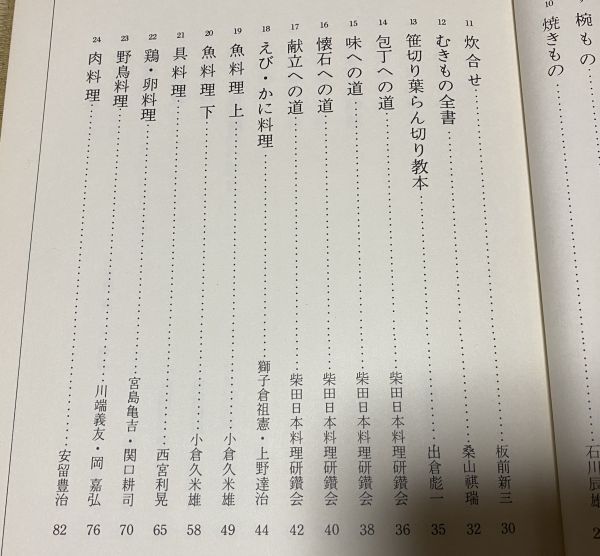 椀もの……石川辰雄 2
10 焼きもの……
11 炊合せ……板前新三 30
12 むきもの全書……桑山祺瑞 32
13 笹切り葉らん切り教本……出倉彪一 35
14 包丁への道……柴田日本料理研鑽会 36
15 味への道……柴田日本料理研鑽会 38
16 懐石への道……柴田日本料理研鑽会 40
17 献立への道……柴田日本料理研鑽会 42
18 えび・かに料理……獅子倉祖憲・上野達治 44
19 魚料理 上……小倉久米雄 49
20 魚料理 下……小倉久米雄 58
21 貝料理……西宮利晃 65
22 鶏・卵料理……宮島亀吉・関口耕司 70
23 野鳥料理……川端義友・岡 嘉弘 76
24 肉料理……安留豊治 82